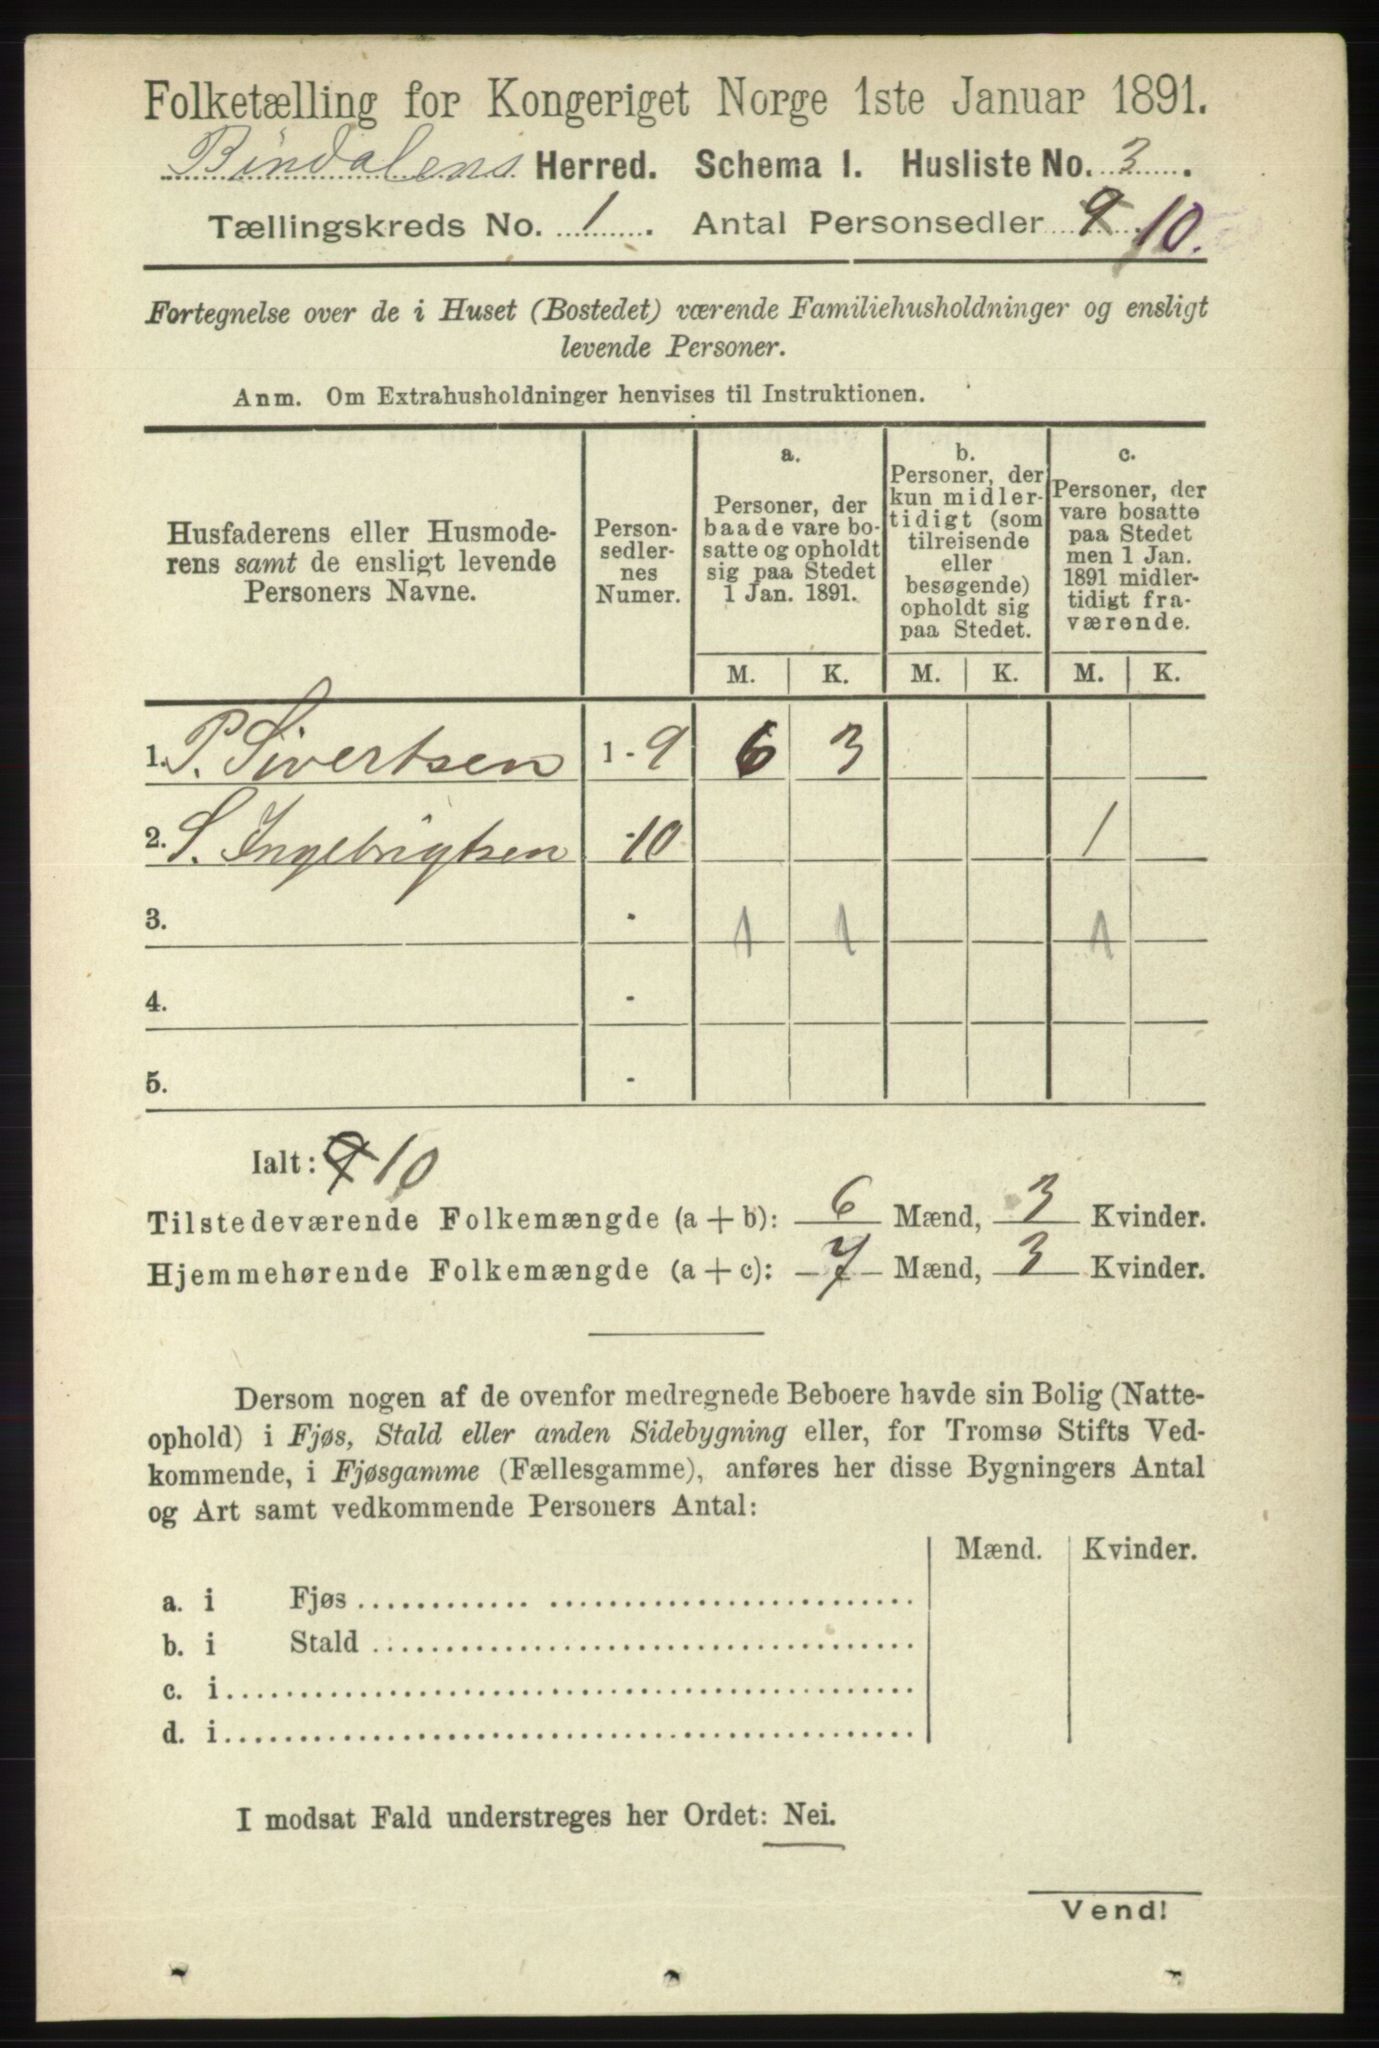 Folketælling for Kongeriget Norge 1ste Januar 1891.
Bindalens Herred. Schema I. Husliste No. 3.
Tællingskreds No. 1. Antal Personsedler 9 10.
Fortegnelse over de i Huset (Bostedet) værende Familiehusholdninger og ensligt
levende Personer.
Anm. Om Extrahusholdninger henvises til Instruktionen.
Husfaderens eller Husmode-
rens samt de ensligt levende
Personers Navne.
Person-
sedler-
nes
Numer.
a.
Personer, der
baade vare bo-
satte og opholdt
sig paa Stedet
1 Jan. 1891.
b.
Personer, der
kun midler-
tidigt (som
tilreisende
eller
besøgende)
opholdt sig
paa Stedet.
c.
Personer, der
vare bosatte
paa Stedet
men 1 Jan.
1891 midler-
tidigt fra-
værende.
M. K. M. K. M. K.
1. P. Sivertsen 1 - 9 6 3
2. S. Ingebrigtsen 10 1
3. 1 1 1
4.
5.
Ialt: 9 10
Tilstedeværende Folkemængde (a + b): 6 Mænd, 3 Kvinder.
Hjemmehørende Folkemængde (a + c): 7 Mænd, 3 Kvinder.
Dersom nogen af de ovenfor medregnede Beboere havde sin Bolig (Natte-
ophold) i Fjøs, Stald eller anden Sidebygning eller, for Tromsø Stifts Ved-
kommende, i Fjøsgamme (Fællesgamme), anføres her disse Bygningers Antal
og Art samt vedkommende Personers Antal:
Mænd. Kvinder.
a. i Fjøs
b. i Stald
c. i
d. i
I modsat Fald understreges her Ordet: Nei.
Vend!